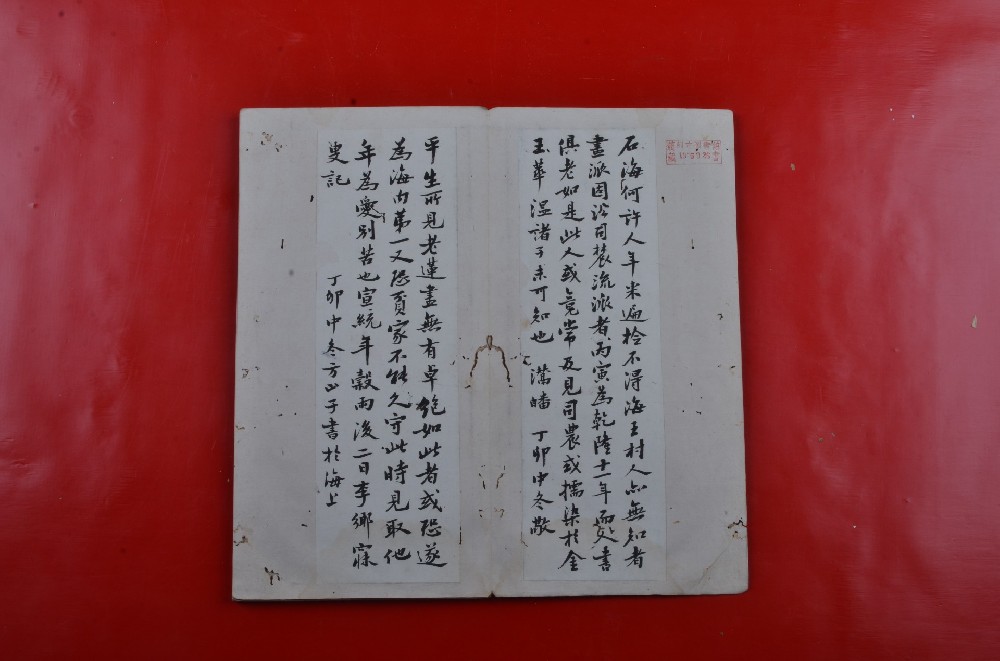 石海何許人年米遍撿不得海王村人亦無知者
畫派因沿司農流派者丙寅為乾隆十一年而書
俱老如是此人或竟嘗及見司農或擩染於金
王華溫諸子未可知也 瀿皤 丁卯中冬敬
平生所見老蓮畫無有卓絕如此者或恐遂
為海內第一又恐貢家不能久守此時見取他
年為愛別苦也宣統年穀雨後二日李鄉寐
叟記 丁卯中冬方山子書於海上